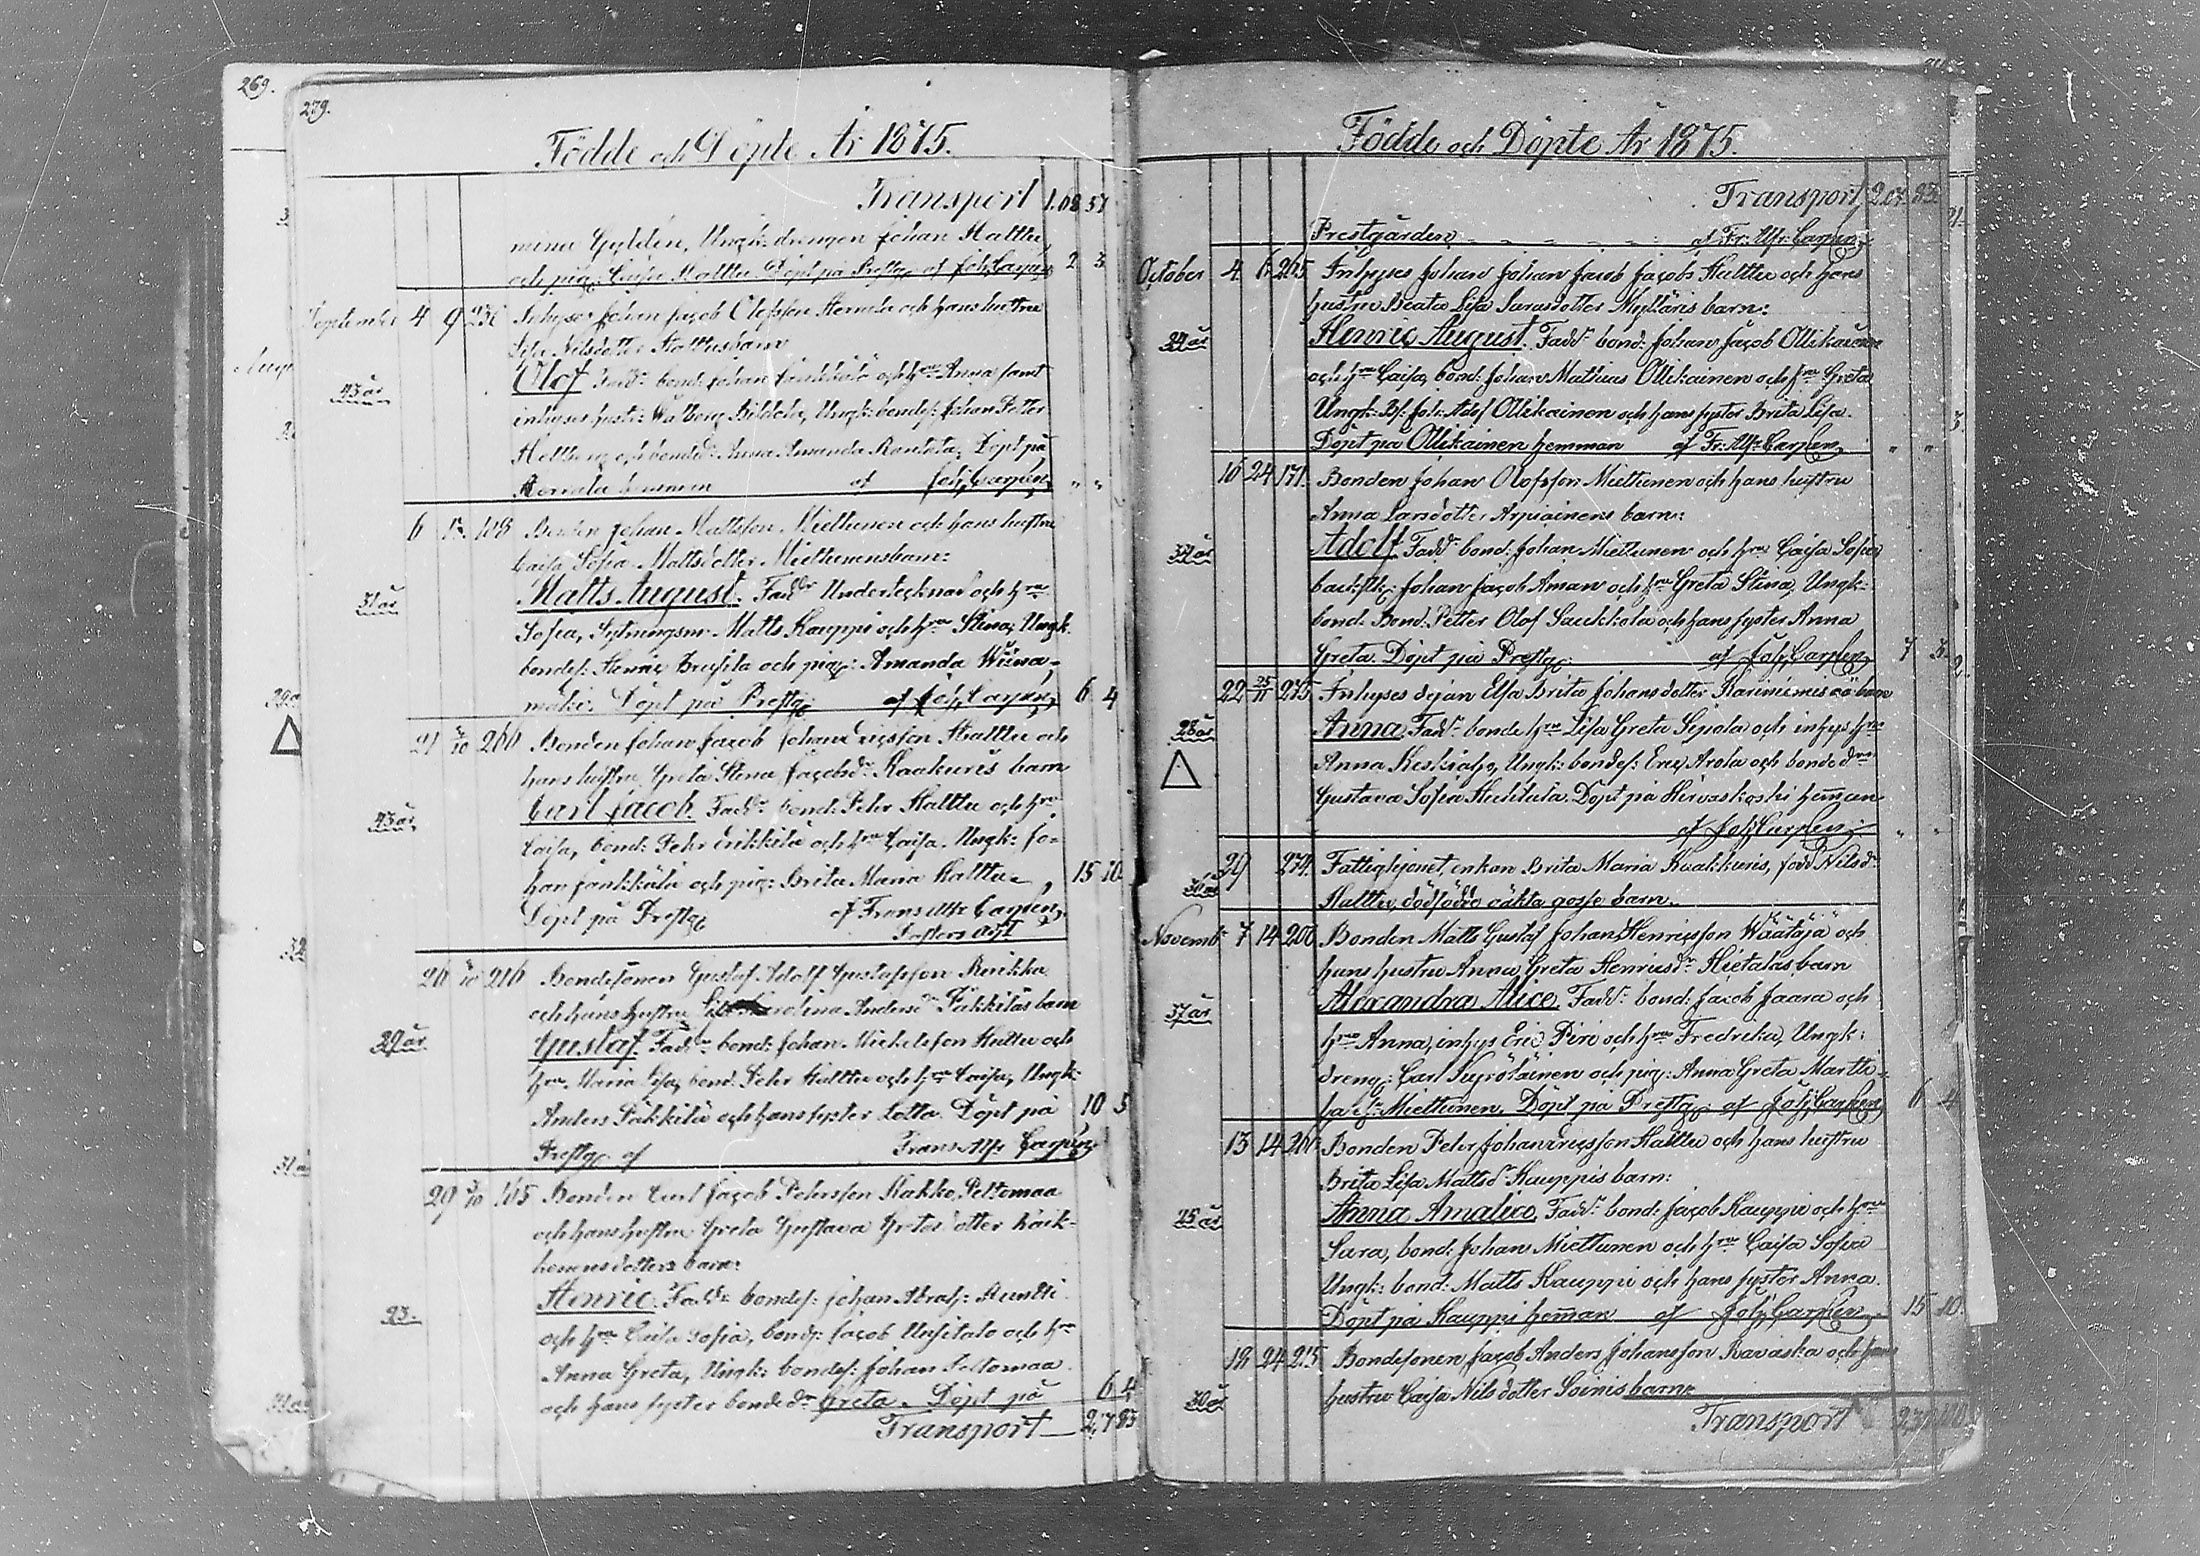 269.
279.
Födde och Döpte År 1875.
Transport 1.68 51
mina Gyldén, Ungk: drengen Johan Halttu,
och pig: Caisa Halttu. Döpt på Prestg. af Joh: Carpén 2 3
September 4 9 Inhyses Johan Jacob Olofsson Hermala och hans hustru
Lisa Nilsdotter Halttus barn
43 år Olof Fadd:r bond: Johan och h:ru Anna samt
inhyses hustr: Ungk: bondes: Johan Petter
och bonded: Anna Amanda Döpt på
hemman af Joh: Carpén " "
6 108 Bonden Johan Mattsson Miettunen och hans hustru
Caisa Sofia Mattsdotter Miettunens barn:
31 år Matts August. Fadd:r Undertecknad och h:ru
Sofia, Sytningsm: Matts Kauppi och h:ru Stina, Ungk:
bondes: Henric och pig: Amanda Wiina-
mäki. Döpt på Prestg: af Joh: Carpén 6 4
21 5/10 260 Bonden Johan Jacob Johan Ericsson Halttu och
hans hustru Greta Stina Jacobsd:r Kaakuris barn
43 år Carl Jacob. Fadd:r bond: Pehr Halttu och h:ru
Caisa, bond: Pehr Erikkilä och h:ru Caisa. Ungk: Jo-
han Jankkila och pig: Brita Maria Halttu 15 10
Döpt på Prestg: af Frans Alfr Carpén,
Pastors adj:t
26 216 Bondesonen Gustaf Adolf Gustafsson
och hans hustru Carolina Andersd:r Päkkiläs barn
29 år Gustaf. Fadd:r bond: Johan Michelsson Halttu och
h:ru Maria Lisa, bond: Pehr Halttu och h:ru Caisa, Ungk:
Anders Päkkilä och hans syster Lotta. Döpt på 10 5
Prestg: af Frans Alfr Carpén
29 3/10 165 Bonden Carl Jacob Pehrsson Kakko, Peltomaa
och hans hustru Greta Gustava Gretes dotter Haik-
honensdotters barn:
23. Henric. Fadd:r bondes: Johan Abrah:
och h:ru Caisa Sofia, bond: Jacob Uusitalo och h:ru
Anna Greta, Ungk: bondes: Johan Peltomaa
och hans syster bonded:r Greta. Döpt på 6 4
Transport 2,7 85
Födde och Döpte År 1875.
Transport 2.07. 85
Prestgården af Fr: Alfr: Carpén
October 4. 6. 265 Inhyses Johan Johan Jacob Jacobs Halttu och hans
hustru Beata Lisa Larsdotter Mylläris barn:
24 år Henric August. Fadd:r bond: Johan Jacob Ollikainen
och h:ru Caisa, bond: Johan Mathias Ollikainen och h:ru Greta
Ungk: Bs: Joh: Adof Ollikainen och hans syster Brita Lisa.
Döpt på Ollikainen hemman af Fr: Alfr: Carpén " "
16 24 171. Bonden Johan Olofsson Miettunen och hans hustru
Anna Larsdotter Arpiainens barn:
34 år Adolf. Fadd:r bond: Johan Miettunen och h:ru Caisa Sofia
backstk: Johan Jacob Aman och h:ru Greta Stina, Ungk:
bond: Bond: Petter Olof Saukkola och hans syster Anna
Greta. Döpt på Prestg: af Joh: Carpén 7 3.
22 25/11 275 Inhyses dejan Elsa Brita Johansdotter Rauniemis oä: barn
28 år Anna. Fadd:r bonde h:ru Lisa Greta Sejola och inhys h:ru
Anna Keskiaho, Ungk: bondes: Eric Arola och bonde d:r
Gustava Sofia Huhtala. Döpt på Hirvaskoski hem̄an
af Joh: Carpén " "
29 279. Fattighjonet, enkan Brita Maria Kaakkuris, född Nilsd:r
36 år Halttu, dödfödde oäkta gosse barn.
Novemb: 7 14 200 Bonden Matts Gustaf Johan Henricsson Wäätäjä och
hans hustru Anna Greta Henricsd:r Hietalas barn
37 år Alexandra Alice. Fadd:r bond: Jacob Jaara och
h:ru Anna, inhys Eric Piri och h:ru Fredrika, Ungk:
dreng: Carl och pig: Anna Greta Martti-
Miettunen. Döpt på Prestg: af Joh: Carpén 6 4
13 14 260 Bonden Pehr Johan Ericsson Halttu och hans hustru
Brita Lisa Mattsd:r Kauppis barn:
25 år Anna Amalice. Fadd:r bond: Jacob Kauppi och h:ru
Sara, bond: Johan Miettunen och h:ru Caisa Sofia
Ungk: bond: Matts Kauppi och hans syster Anna.
Döpt på Kauppi hem̄an af Joh: Carpén 15 10.
18 24 215 Bondesonen Jacob Anders Johansson Ravaska och hans
30 år hustru Caisa Nilsdotter Soinis barn:
Transport